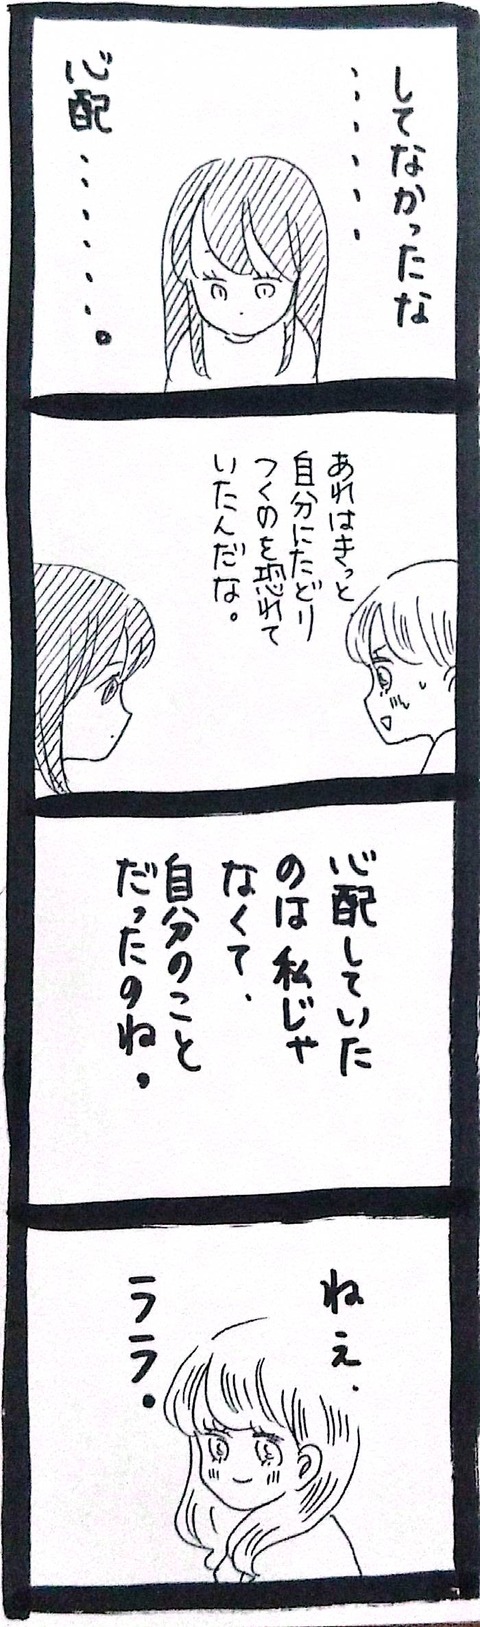 してなかったな
……
心配………。
あれはきっと
自分にたどり
つくのを恐れて
いたんだな。
心配していた
のは私じゃ
なくて、
自分のこと
だったのね。
ねぇ、
ララ。